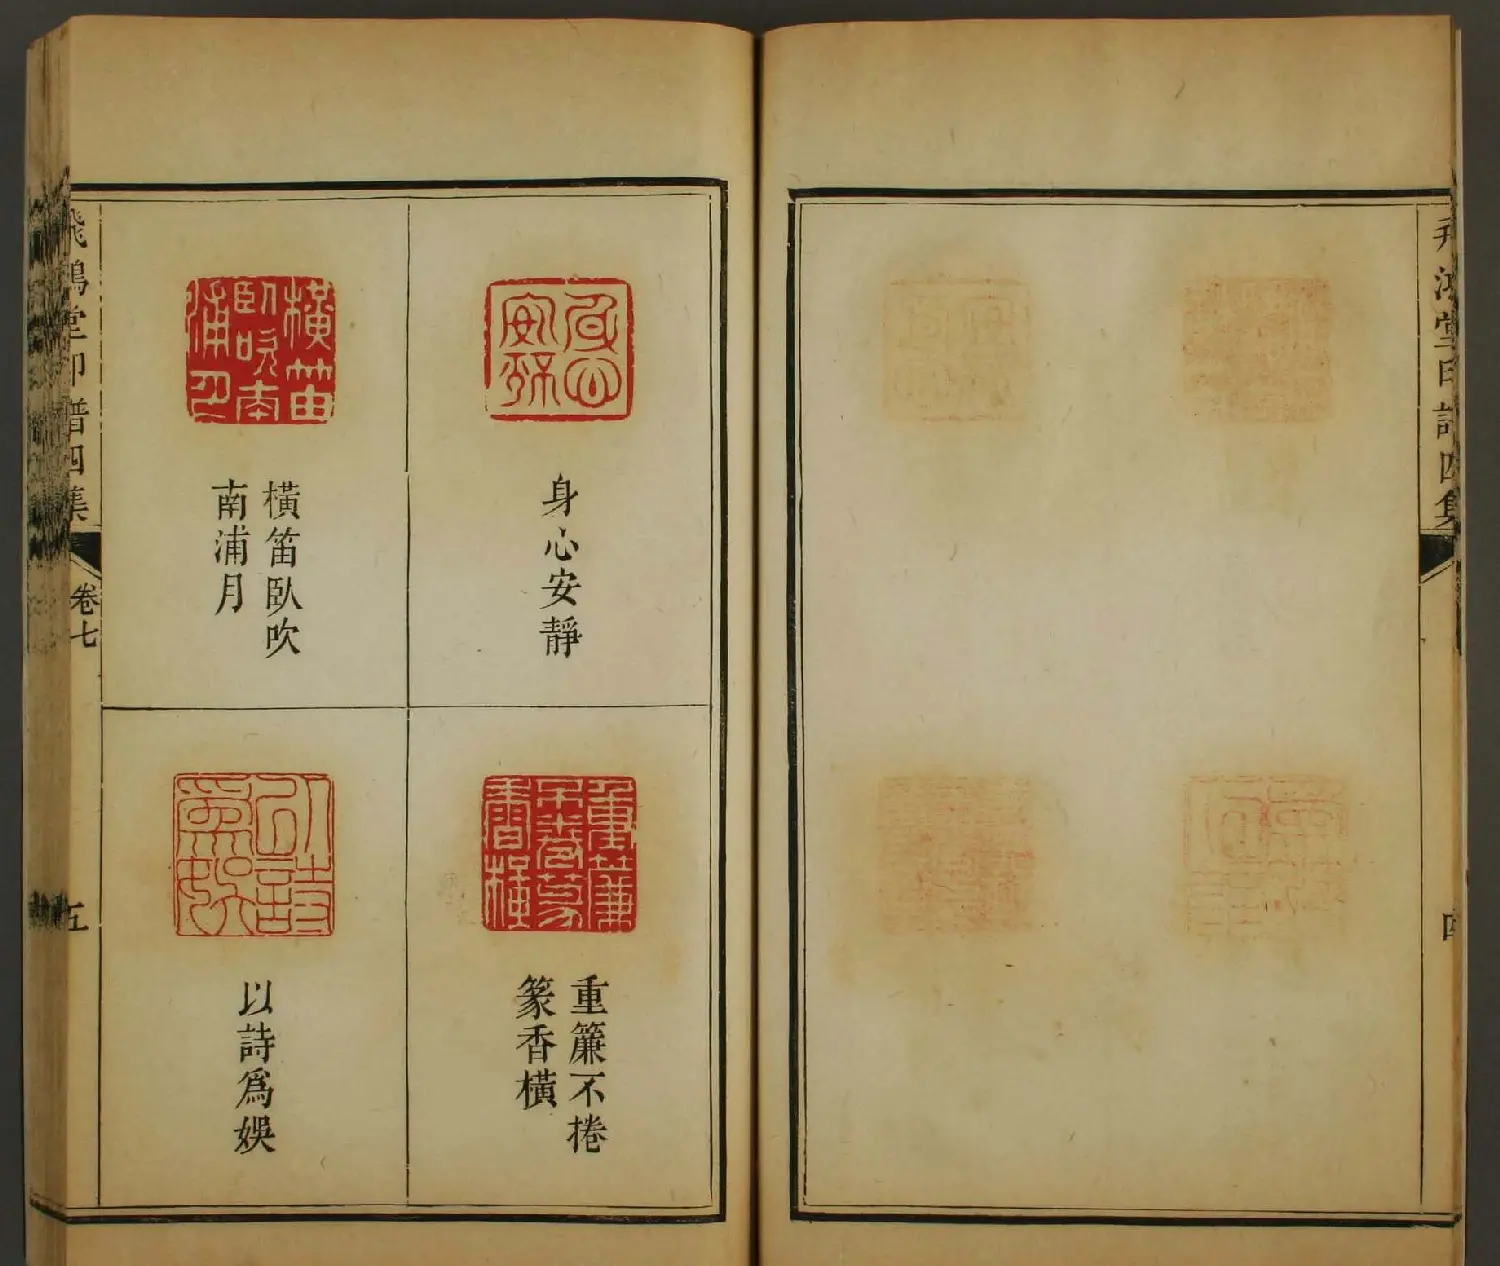 飛鴻堂印譜四集
卷七
五
身心安靜
橫笛臥吹
南浦月
重簾不捲
篆香橫
以詩爲娛
飛鴻堂印譜四集
四